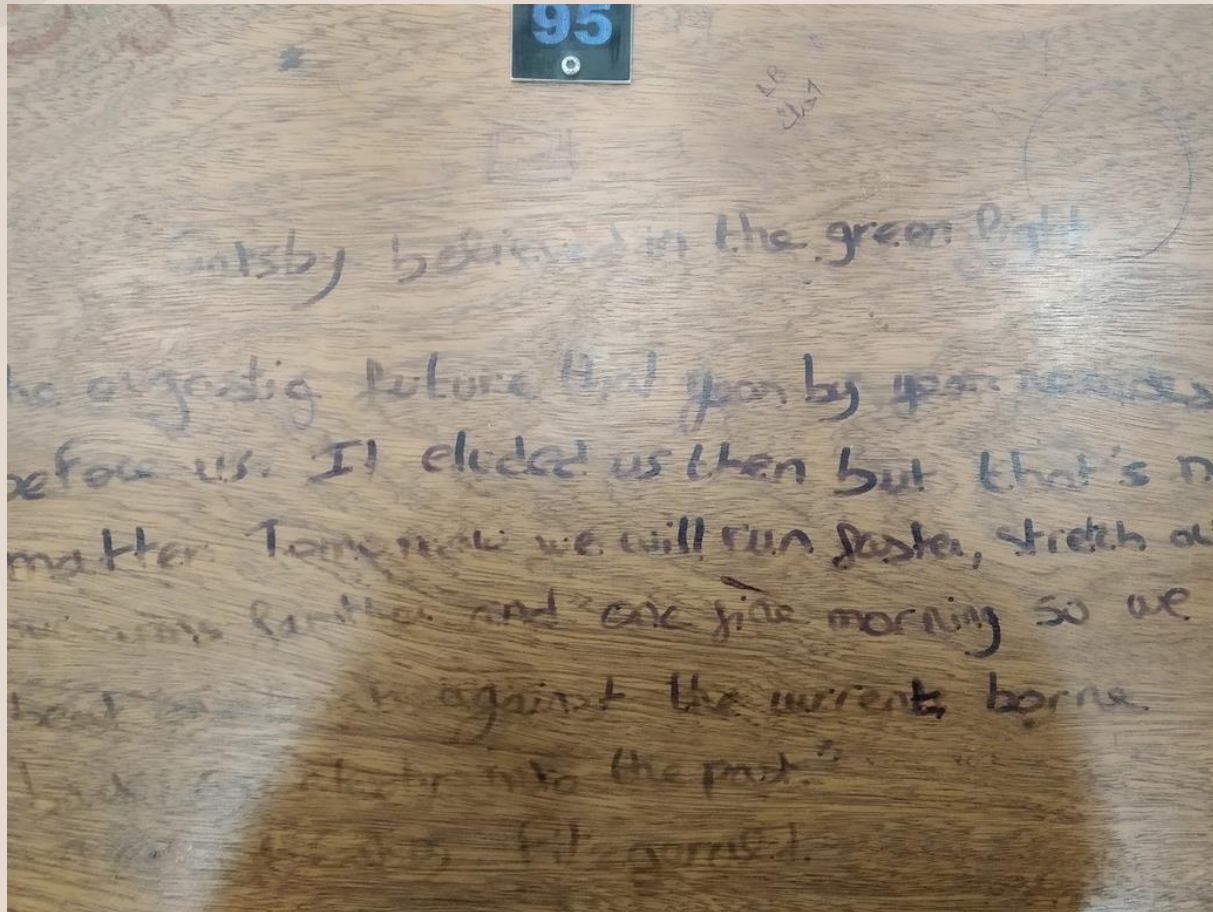 95
Gatsby believed in the green light
he orgastig future that year by year recedes
before us. It eluded us then but that's n
matter Tomorrow we will run faster, stretch ou
our arms further and one fine morning so we
beat on against the current, borne
into the past."
Fitzgerald.